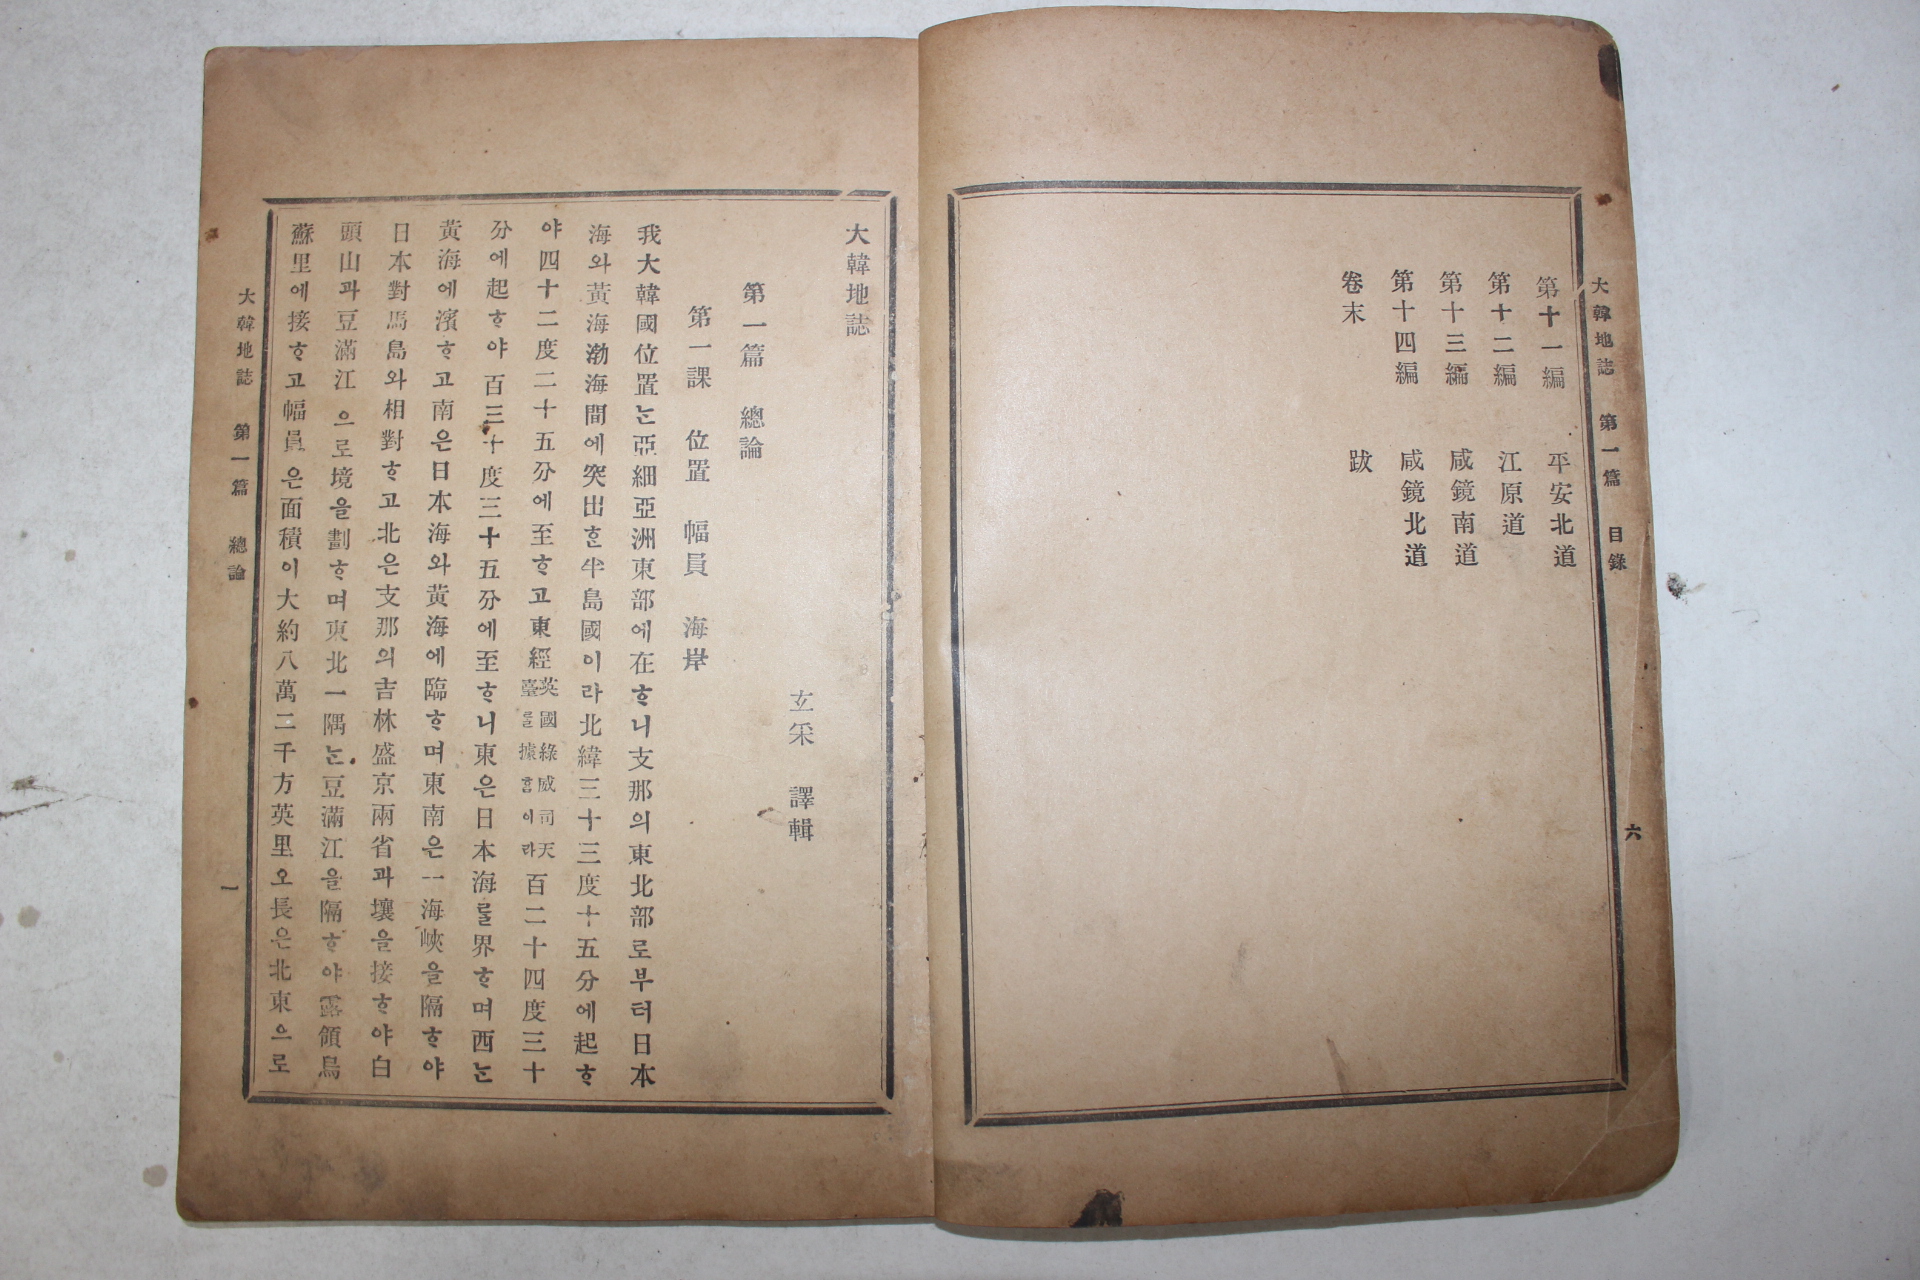 大韓地誌 第一篇 目錄 六
第十一編 平安北道
第十二編 江原道
第十三編 咸鏡南道
第十四編 咸鏡北道
卷末 跋
大韓地誌
玄采 譯輯
第一篇 總論
第一課 位置 幅員 海岸
我大韓國位置는亞細亞洲東部에在ᄒᆞ니支那의東北部로부터日本
海와黃海渤海間에突出ᄒᆞᆫ半島國이라北緯三十三度十五分에起ᄒᆞ
야四十二度二十五分에至ᄒᆞ고東經英國綠威司天臺를據홈이라百二十四度三十
分에起ᄒᆞ야百三十度三十五分에至ᄒᆞ니東은日本海를界ᄒᆞ며西ᄂᆞᆫ
黃海에濱ᄒᆞ고南은日本海와黃海에臨ᄒᆞ며東南은一海峽을隔ᄒᆞ야
日本對馬島와相對ᄒᆞ고北은支那의吉林盛京兩省과壤을接ᄒᆞ야白
頭山과豆滿江으로境을劃ᄒᆞ며東北一隅ᄂᆞᆫ豆滿江을隔ᄒᆞ야露領烏
蘇里에接ᄒᆞ고幅員은面積이大約八萬二千方英里오長은北東으로
大韓地誌 第一篇 總論 一